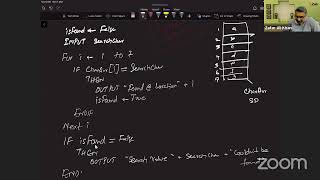 Zafar Ali Khan
isFound ← False
INPUT SearchChar
For i ← 1 to 7
IF CharArr[i] = SearchChar
THEN
OUTPUT "Found @ Location" + i
isFound ← True
ENDIF
Next i
IF isFound = False
THEN
OUTPUT "Search Value" + SearchChar + "Couldn't be found
ENDIF
1
2
3
4
5
6
7
CharArr
1D
zoom